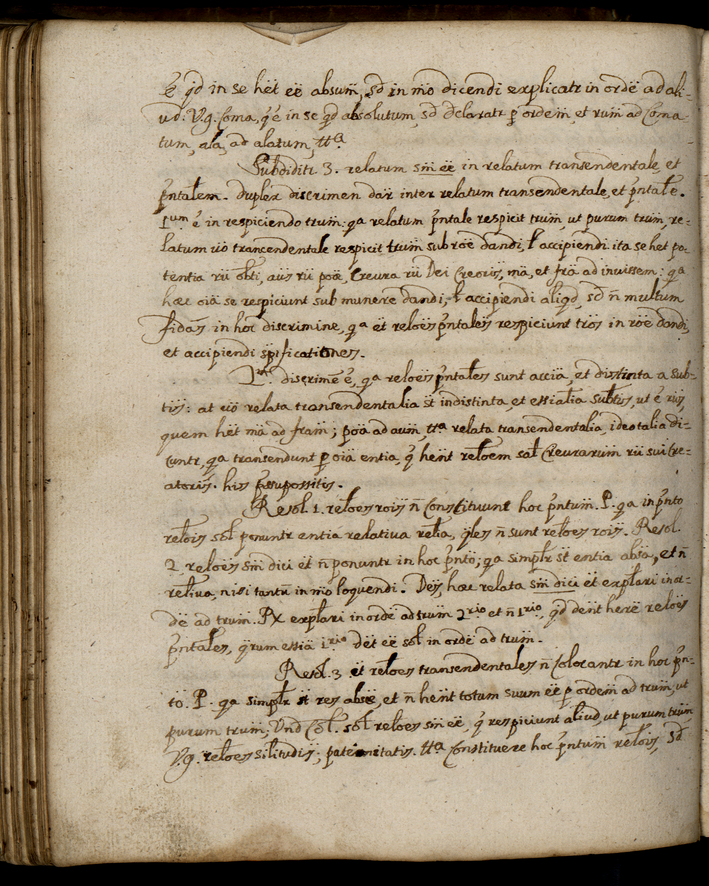 ē q̄d in se hēt eē absum̄, sd̄ in m̄o dicendi explicatr in ordē ad ali-
ud: V.g. Coma, q̄ ē in se q̄d absolutum, sd̄ dclaratr p̄ ordem̄, et rum̄ ad Coma-
tum, ala, ad alatum, ttª.
Subdiditr 3. relatum sm̄ eē in relatum transendentale, et
p̄ntalem. Duplex discrimen dar̄ inter relatum transendentale, et p̄ntale.
1um ē in respiciendo trum̄: qª relatum p̄ntale respicit trum̄, ut purum trum̄, re-
latum v̄o trancendentale respicit trum̄ sub roē dandi, ł accipiendi: ita se het po-
tentia rū obti, aus rū poā, Creura rū Dei Creoris, mā, et frā ad invissem: qª
hæc oīa se respiciunt sub munere dandi, ł accipiendi aliqd, sd̄ n̄ multum
fidas in hoc discrimine, qª et reloēs p̄ntales respiciunt tros in roē dandi,
et accipiendi spificationes.
2um discrimē ē, qª reloēs p̄ntales sunt accīa, et distinta a sub-
tijs: at v̄o relata transendentalia st̄ indistinta, et essialia subtijs, ut ē rus,
quem hēt mā ad fram̄; poā ad aum̄ ttª relata transendentalia ideo talia di-
cuntr, qª transendunt p̄ oīa entia, q̄ hent̄ reloem sał Creurarum̄ rū sui Cre-
atoris. his p̄supossitis.
Resol. 1. reloes rois n̄ Constituunt hoc p̄ntum̄. P. qª in p̄nto
relois sol ponuntr entia relativa relia, q̄les n̄ sunt reloes rois. Resol.
2 reloēs sm̄ dici et n̄ ponuntr in hoc p̄nto; qª simplr st̄ entia absa, et n̄
reliva, nisi tantn̄ in m̄o loquendi. Deīs, hæc relata sm̄ dici et explari in or-
dē ad trum. Px explari in ordē ad trum 2rio et n̄ 1rio, q̄d dent herē reloēs
p̄ntales, q̄rum essia 1rio dēt eē sol in ordē ad trum.
Resol. 3. et reloēs transendentales n̄ Colocantr in hoc p̄n-
to. P. qª simplr st̄ res absæ, et n̄ hent̄ totum suum eē p̄ ordem̄ ad trum̄, ut
purum trum̄, Und Col. sol reloēs sm̄ eē, q̄ respiciunt aliud, ut purum trum
V.g. reloēs silitudis, paternitatis, ttª Constituere hoc p̄ntum̄ relois, sd̄